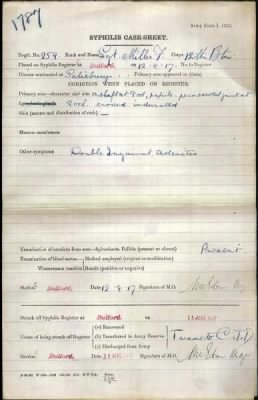 1787
Army Form I. 1238.
SYPHILIS CASE-SHEET.
Regtl. No. 259 Rank and Name Sgt. Miller J. Corps 12th Btn.
Placed on Syphilis Register at Bulford on 12-8-17. No. in Register
Disease contracted at Salisbury . . Primary sore appeared on (date)
CONDITION WHEN PLACED ON REGISTER.
Primary sore—character and site
Skin (nature and distribution of rash)
Mucous membranes
Other symptoms Double Inguinal Adenitis
Examination of exudate from sore—Spirochaeta Pallida (present or absent) Present
Examination of blood serum—Method employed (original or modification)
Wassermann reaction Result (positive or negative)
Station Bulford Date 12 8 17 Signature of M.O.
Struck off Syphilis Register at Bulford on
Cause of being struck off Register
(a) Recovered
(b) Transferred to Army Reserve
(c) Discharged from Army
Station Bulford Date Signature of M.O.